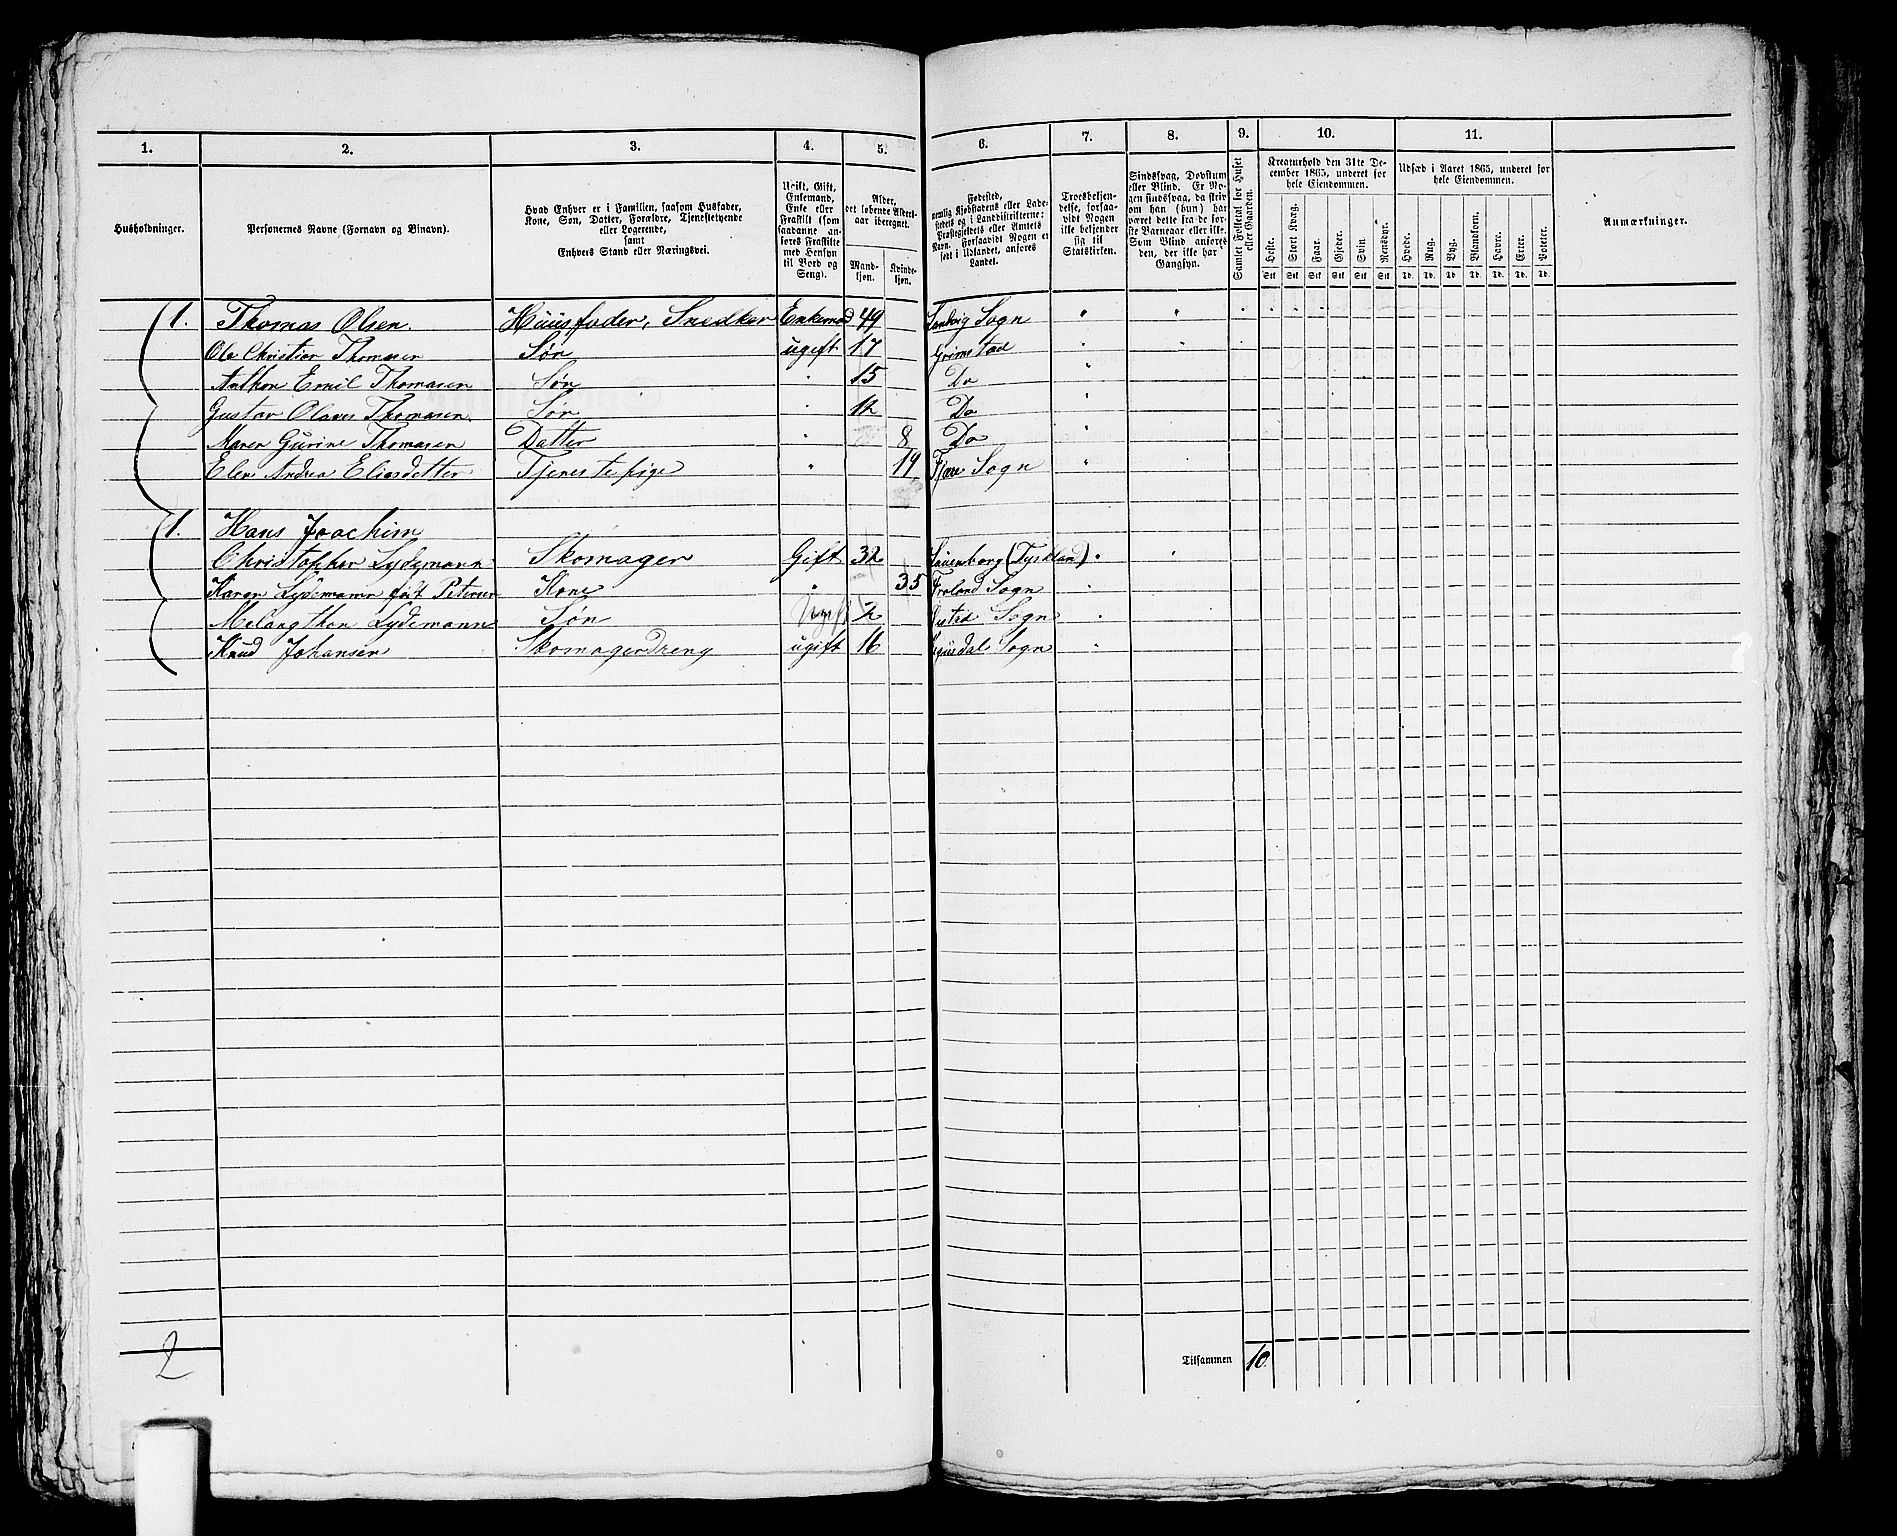 1. 2. 3. 4. 5. 6. 7. 8. 9. 10. 11.
Husholdninger.
Personernes Navne (Fornavn og Binavn).
Hvad Enhver er i Familien, saasom Husfader,
Kone, Søn, Datter, Forældre, Tjenestetyende
eller Logerende,
samt
Enhvers Stand eller Næringsvei.
Ugift, Gift,
Enkemand,
Enke eller
Fraskilt (som
saadanne an-
føres Fraskilte
med Hensyn
til Bord og
Seng).
Alder,
det løbende Alders-
aar iberegnet.
Mand-
kjøn.
Kvinde-
kjøn.
Fødested,
nemlig Kjøbstadens eller Lade-
stedets og i Landdistrikterne:
Præstegjeldets eller Amtets
Navn. Forsaavidt Nogen er
født i Udlandet, anføres
Landet.
Troesbekjen-
delse, forsaa-
vidt Nogen
ikke bekjender
sig til
Statskirken.
Sindssvag, Døvstum
eller Blind. Er No-
gen sindssvag, da skriv
om han (hun) har
været dette fra de før-
ste Barneaar eller ikke.
Som Blind anføres
den, der ikke har
Gangsyn.
Samlet Folketal for Huset
eller Gaarden.
Kreaturhold den 31te De-
cember 1865, underet for
hele Eiendommen.
Heste. Stort Kvæg. Faar. Gjeder. Svin. Rensdyr.
Stk Stk Stk Stk Stk Stk
Udsæd i Aaret 1865, underet for
hele Eiendommen.
Hvede. Rug. Byg. Blandkorn. Havre. Erter. Poteter.
Td. Td. Td. Td. Td. Td. Td.
Anmærkninger.
1. Thomas Olsen. Huusfader, Snedker Enkemd 49 Landvig Sogn " "
Ole Christian Thomasen Søn ugift 17 Grimstad " "
Anthon Emil Thomasen Søn " 15 Do "
Gustav Olaves Thomasen Søn " 12 Do "
Maren Gurine Thomasen Datter " 8 Do "
Elen Andrea Eliasdatter Tjenestepige " 19 Fjære Sogn "
1. Hans Joachim
Christopher Lydemann Skomager Gift 32 Lauenborg (Tyskland) " "
Karen Lydemann født Petersen Kone " 35 Froland Sogn "
Melangthon Lydemann Søn Ugift 2 Østed Sogn "
Knud Johansen Skomagerdreng ugift 16 Sogn "
2
Tilsammen 10.